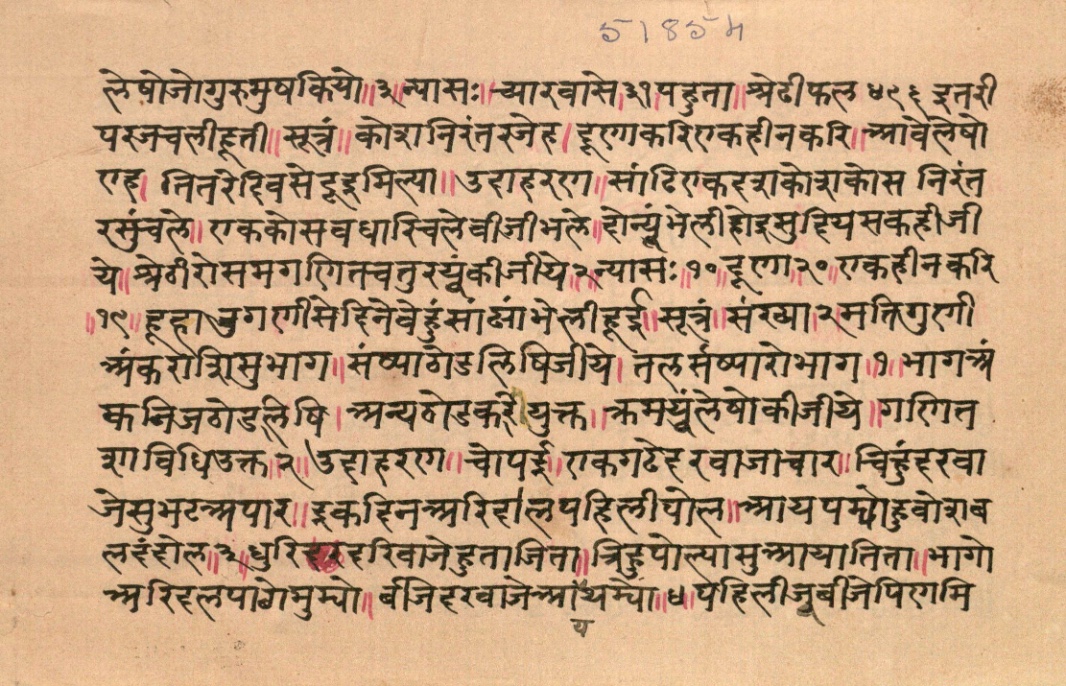 51854
लेषोजोगुरुमुषकियो॥३॥न्यासः॥च्यारवासे३१पहुता॥श्रेढीफल४९६इतरी
परजचलीहूती॥सूत्रं॥कोशनिरंतरजेह।दूणकरिएकहीनकरि॥आवैलेषो
एह।तितरेदिवसेदूइमिल्या॥उदाहरण॥सांढिएकदशकोशकोस निरंत
रसुंचले॥एककोसवधारिचलेवीजीभले॥दोन्यूंभेलीहोइसुदियसकहीजी
ये॥श्रेढीरोसमगणितचतुरयूंकीजीये२न्यासः॥१०॥दूणा२०॥एकहीनकरि
॥१९॥दूहा॥गुगणीसेदिनेवेहुंसांढ्यांभेलीहूई॥सूत्रं॥संख्या२मतिगुणी
अंकराशिसुभाग॥संष्याठोडलिषिजीये।तलसंष्यारोभाग॥१॥भागअं
कनिजठोडलिषि।अन्यठोडकरीयुक्त॥क्रमयूंलेषोकीजीये॥गणित
राविधिउक्त॥२॥उदाहरण॥चोपई॥एकगढेदरवाजाचार॥चिहुंदरवा
जेसुभटअपार॥इकदिनअरिदलपहिलीपोल॥आयपड्योहुवोराव
लदंदोल॥३॥धुरिदरवाजेहुताजिता॥त्रिहुपोल्यासुआयातिता॥भागो
अरिदलपाछोमुड्यो॥वीजेदरवाजेआयअड्यो॥४॥पहिलीजूवीजेपिणमि
य